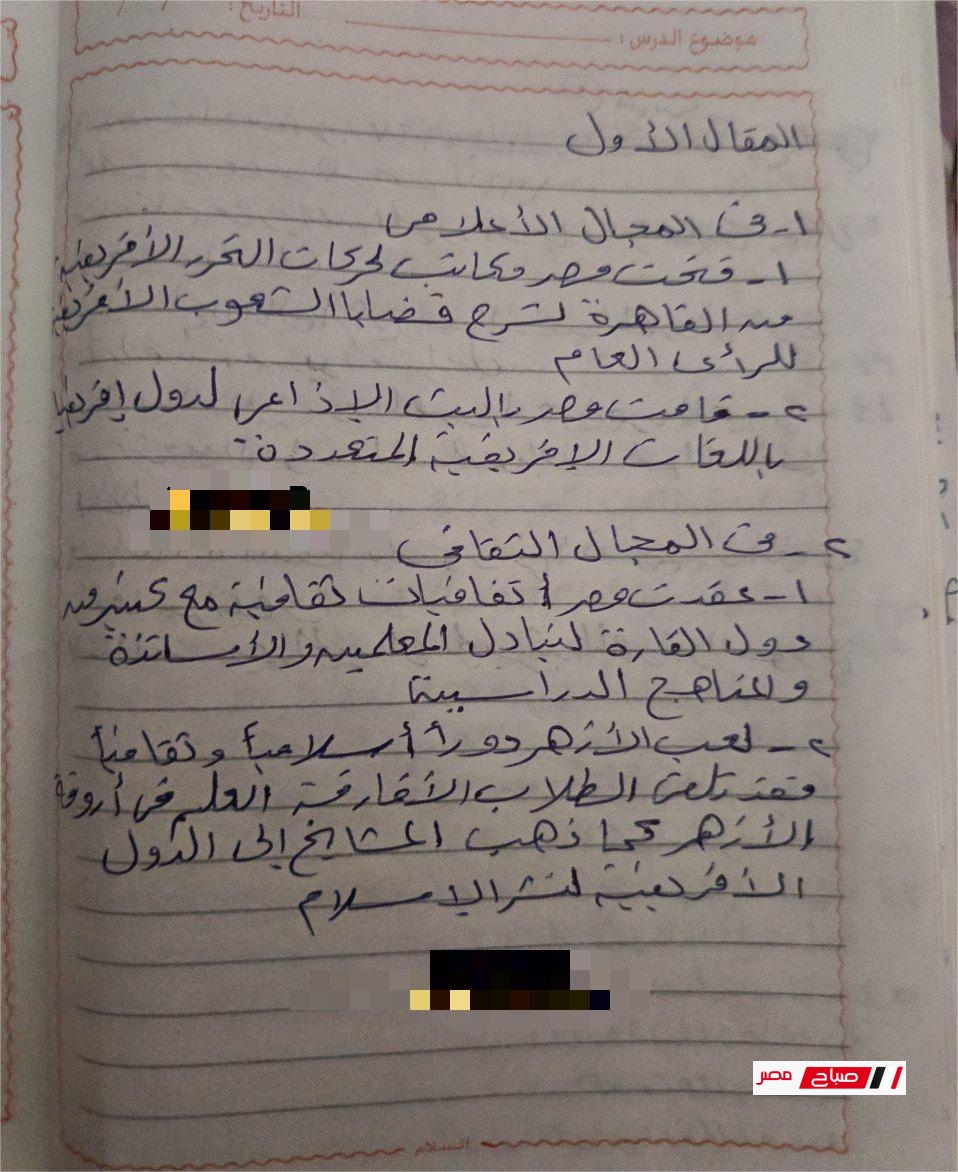 التاريخ: / /
موضوع الدرس:
المقال الأول
١- فى المجال الأعلامى
١- فتحت مصر مكاتب لحركات التحرر الأفريقية
من القاهرة لشرح قضايا الشعوب الأفريقية
للرأى العام
٢- قامت مصر بالبث الإذاعى لدول إفريقيا
باللغات الإفريقية المتعددة
٢- فى المجال الثقافى
١- عقدت مصر اتفاقيات ثقافية مع كثير من
دول القارة لتبادل المعلمين والأساتذة
والمناهج الدراسية
٢- لعب الأزهر دوراً أسلامياً وثقافياً
فقد تلقى الطلاب الأفارقة العلم فى أروقة
الأزهر كما ذهب المشايخ إلى الدول
الأفريقية لنشر الإسلام
صباح مصر
السلام